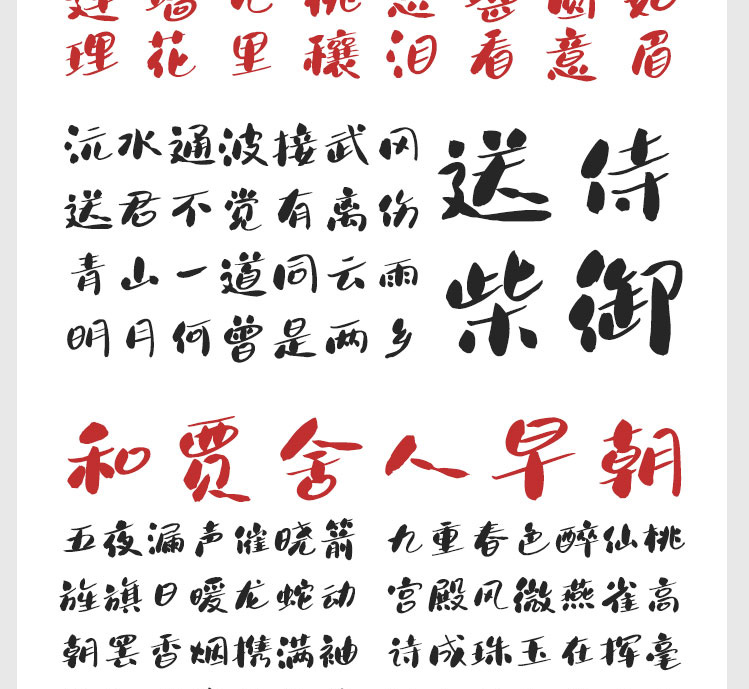 理花里穰泪看意眉
沅水通波接武冈
送君不觉有离伤
青山一道同云雨
明月何曾是两乡
送柴
侍御
和贾舍人早朝
五夜漏声催晓箭 九重春色醉仙桃
旌旗日暖龙蛇动 宫殿风微燕雀高
朝罢香烟携满袖 诗成珠玉在挥毫